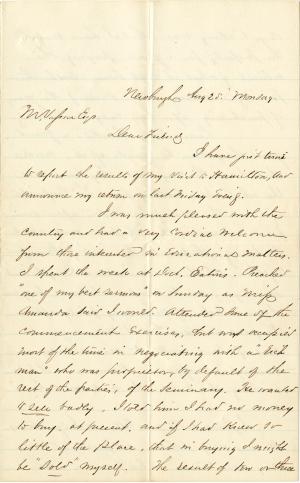 Newburgh Aug 25. Monday
M. Vassar Esq
Dear Friend,
I have just time
to report the results of my visit to Hamilton, and
announce my return on last Friday Eveng.
I was much pleased with the
country and had a very cordial welcome
from those interested in Educational matters.
I spent the week at Doct. Eatons. Preached
"one of my best sermons" on Sunday as
Amanda said I would. Attended some of the
commencement Exercises, but was occupied
most of the time in negociating with a "Rich
man" who was proprietor, by default of the
rest of the parties, of the Seminary. He wanted
to sell badly. I told him I had no money
to buy, at present, and if I had knew so
little of the place, that in buying I might
be "Sold" myself. The result of two or three